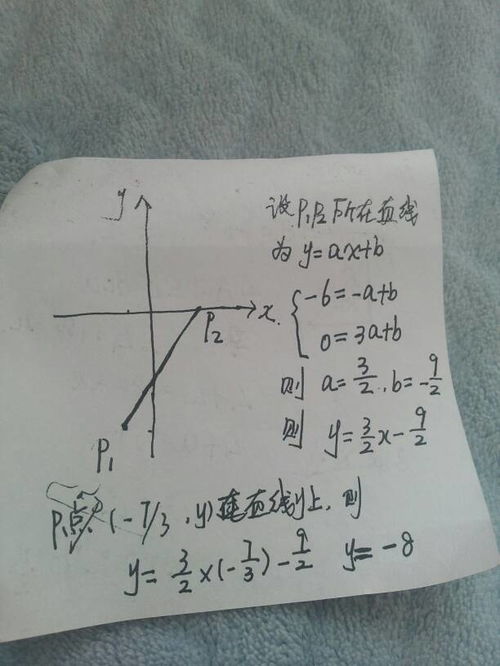 y
x
P₂
P₁
设P₁P₂所在直线
为 y=ax+b
-6=-a+b
0=3a+b
则 a=3/2, b=-9/2
则 y=3/2x-9/2
P点(-7/3, y)在直线上, 则
y=3/2×(-7/3)-9/2 y=-8